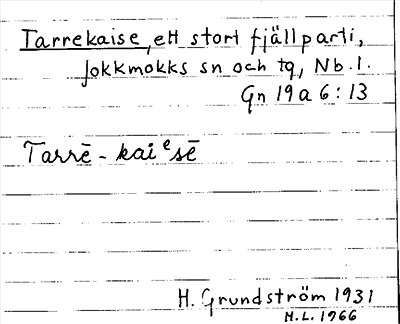 Tarrekaise, ett stort fjällparti,
Jokkmokks sn och tg, Nb.l.
Gn 19a 6:13
Tarrē-kaiᵉsē
H. Grundström 1931
H.L. 1966